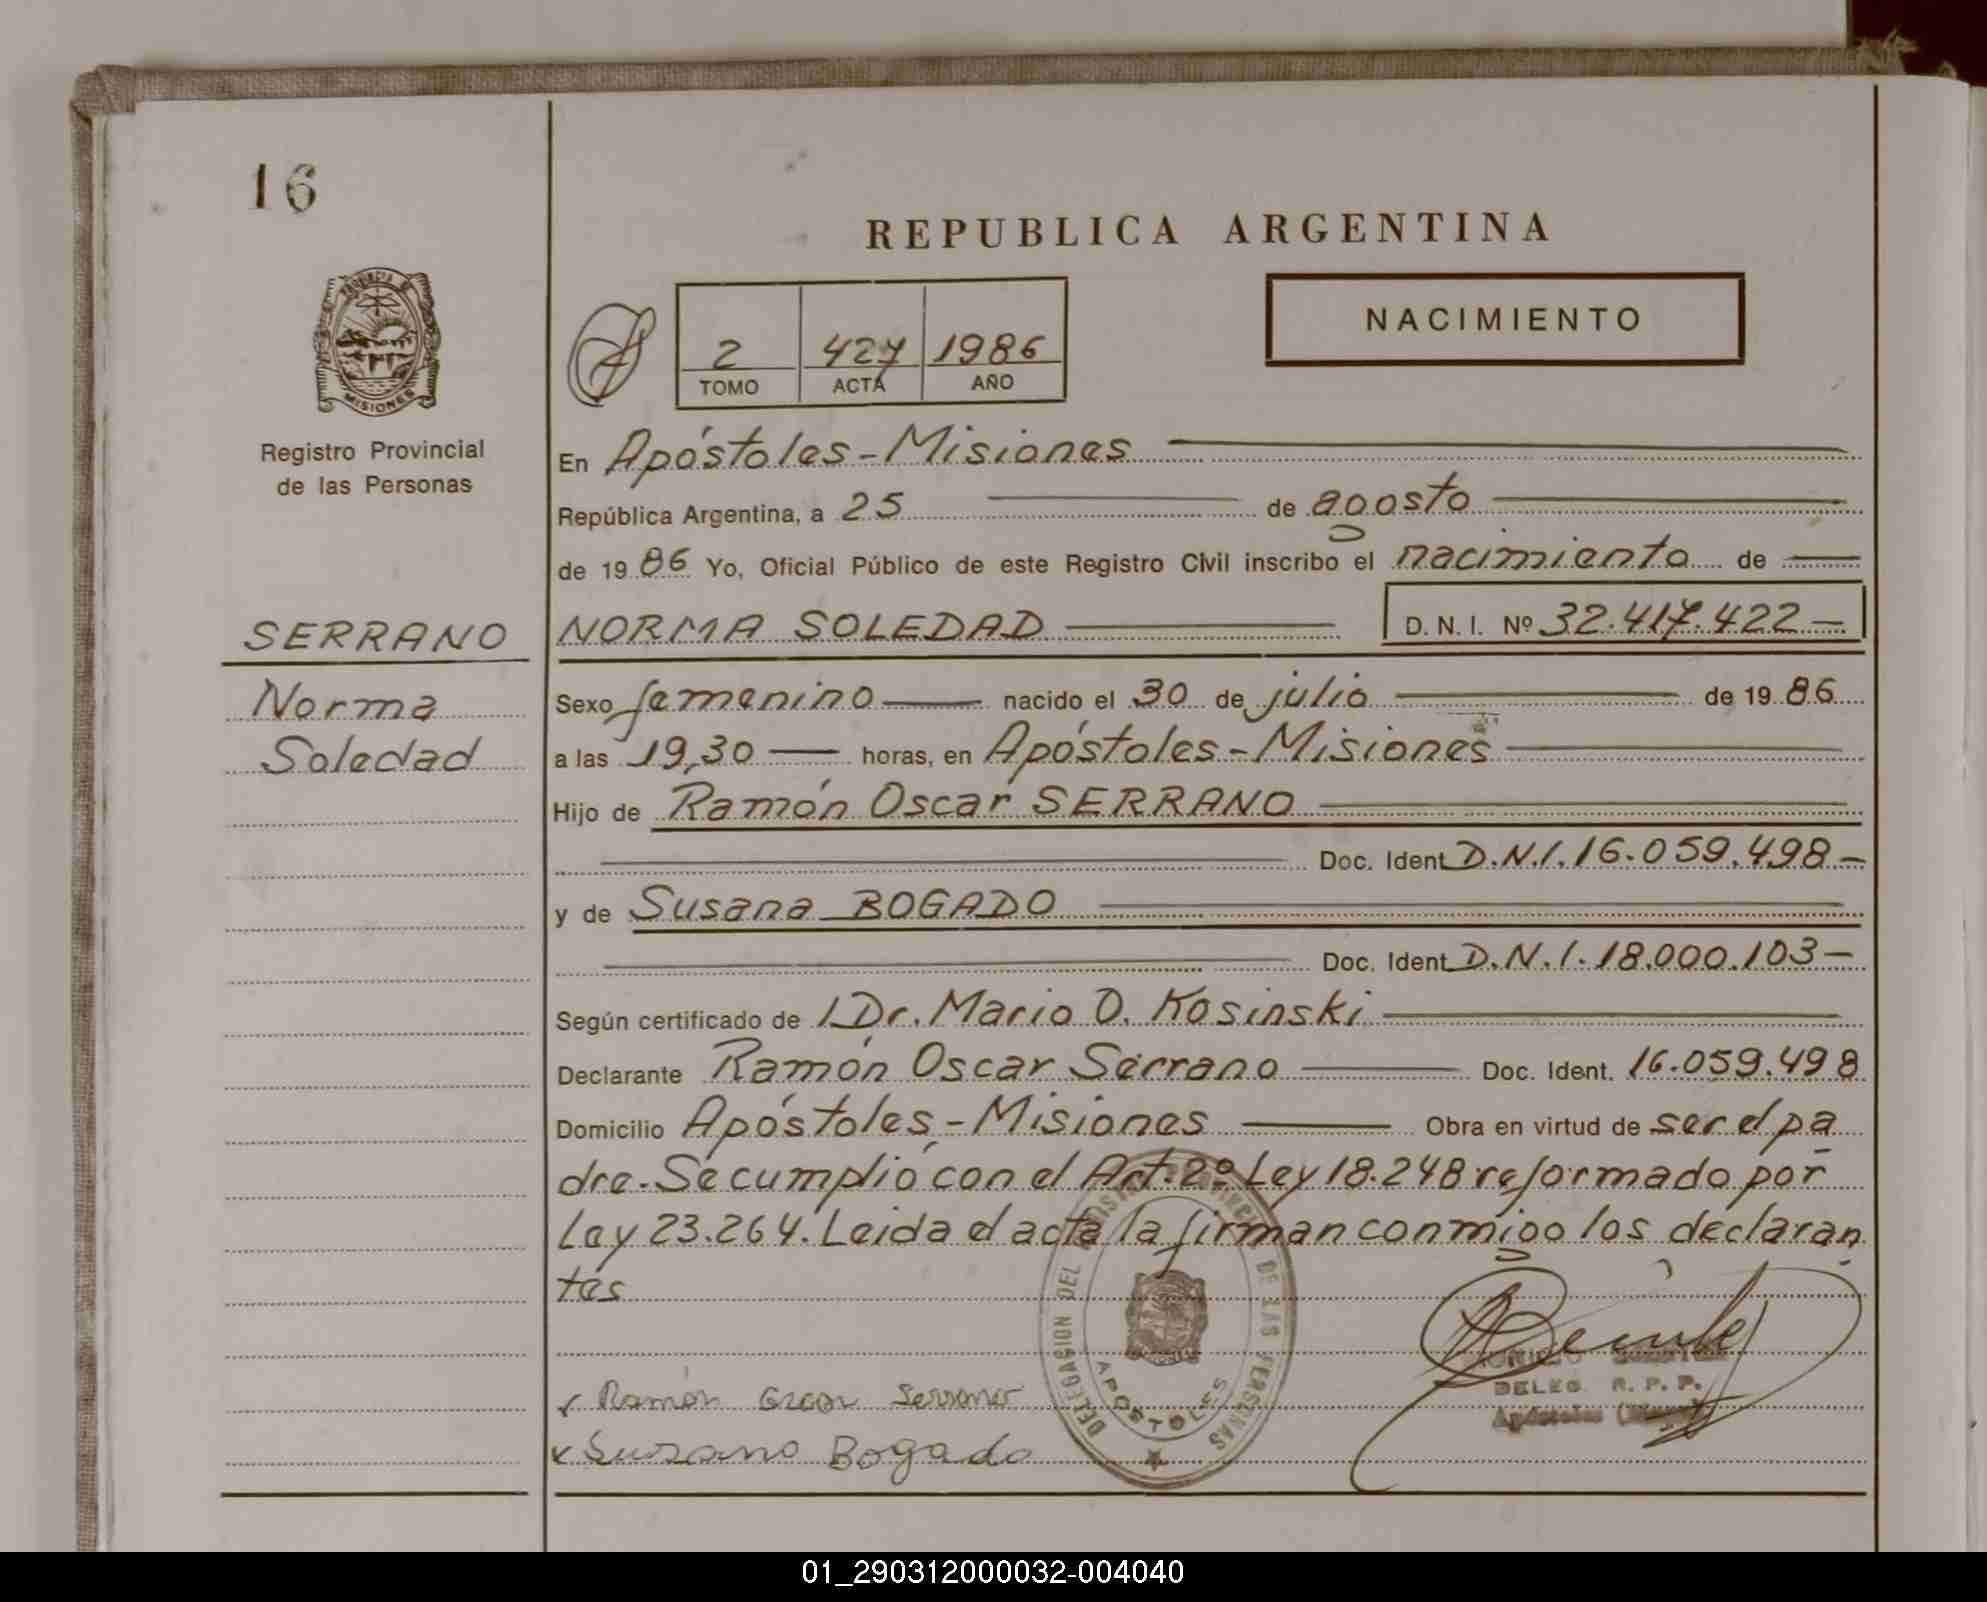 16
REPUBLICA ARGENTINA
PROVINCIA DE
MISIONES
NACIMIENTO
2 427 1986
TOMO ACTA AÑO
Registro Provincial
de las Personas
En Apóstoles-Misiones
República Argentina, a 25 de agosto
de 19 86 Yo, Oficial Público de este Registro Civil inscribo el nacimiento de
SERRANO NORMA SOLEDAD D. N. I. Nº 32.417.422-
Norma
Soledad
Sexo femenino nacido el 30 de julio de 19 86
a las 19,30 horas, en Apóstoles-Misiones
Hijo de Ramón Oscar SERRANO
Doc. Ident D.N.I.16.059.498-
y de Susana BOGADO
Doc. Ident D.N.I.18.000.103-
Según certificado de Dr. Mario O. Kosinski
Declarante Ramón Oscar Serrano Doc. Ident. 16.059.498
Domicilio Apóstoles-Misiones Obra en virtud de ser el pa
dre.-Se cumplió con el Art.2º Ley 18.248 reformado por
Ley 23.264. Leida el acta la firman conmigo los declaran
tes
Ramón Oscar Serrano
Susana Bogado
DELEGACION DEL REGISTRO PROVINCIAL DE LAS PERSONAS
APOSTOLES
DELEG. R. P. P.
Apóstoles
01_290312000032-004040